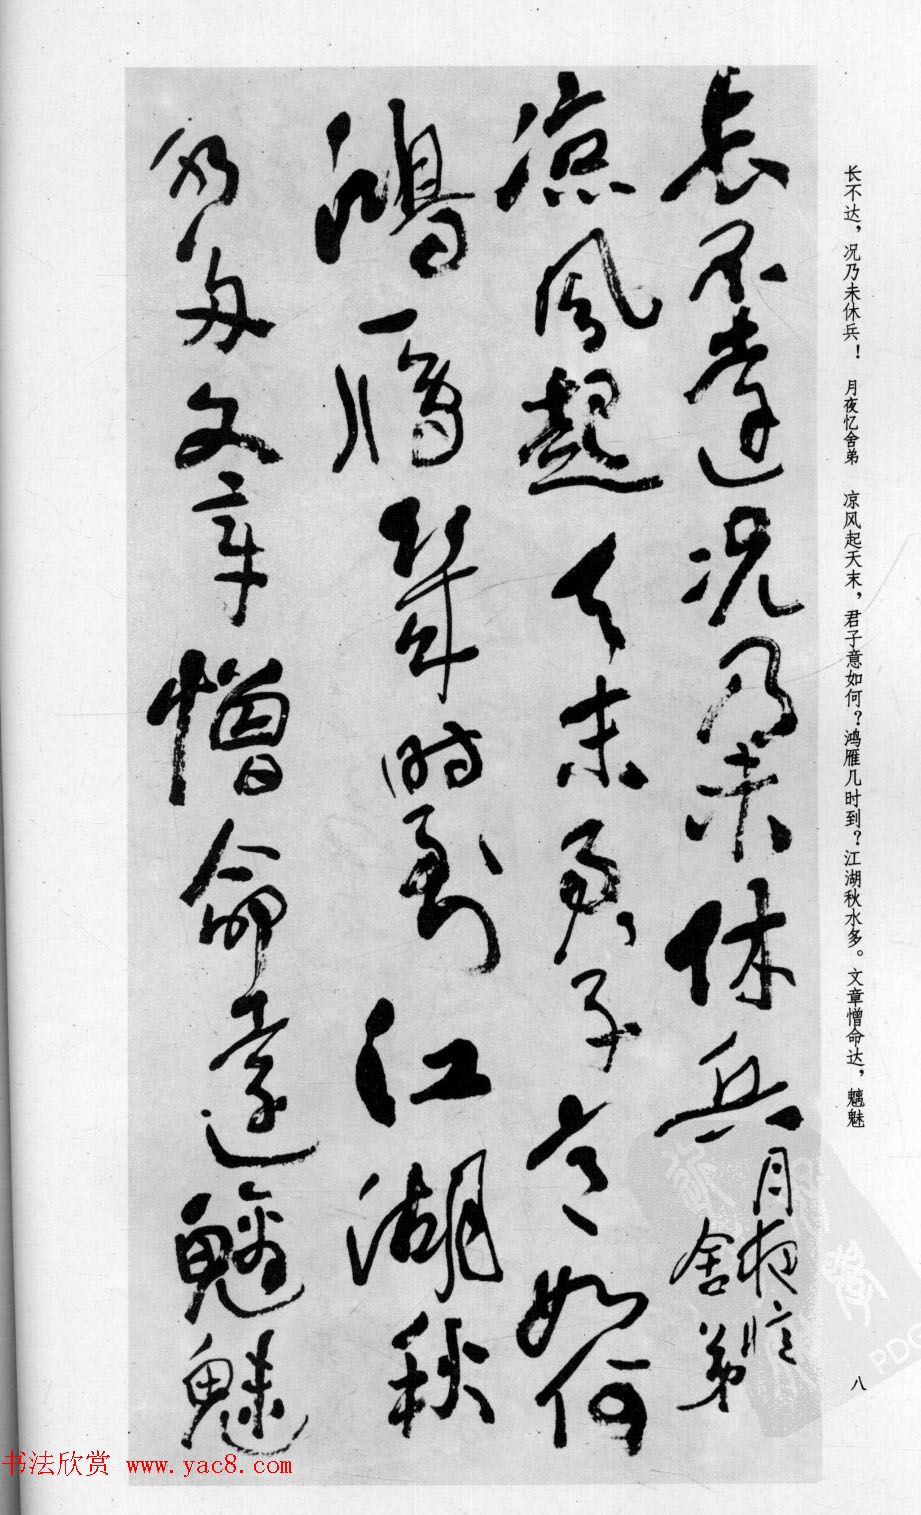 长不达，况乃未休兵！　月夜忆舍弟　凉风起天末，君子意如何？鸿雁几时到？江湖秋水多。文章憎命达，魑魅
長不達況乃未休兵月夜憶
舍弟
涼風起天末君子意如何
鴻雁幾時到江湖秋
水多文章憎命達魑魅
八
书法欣赏 www.yac8.com